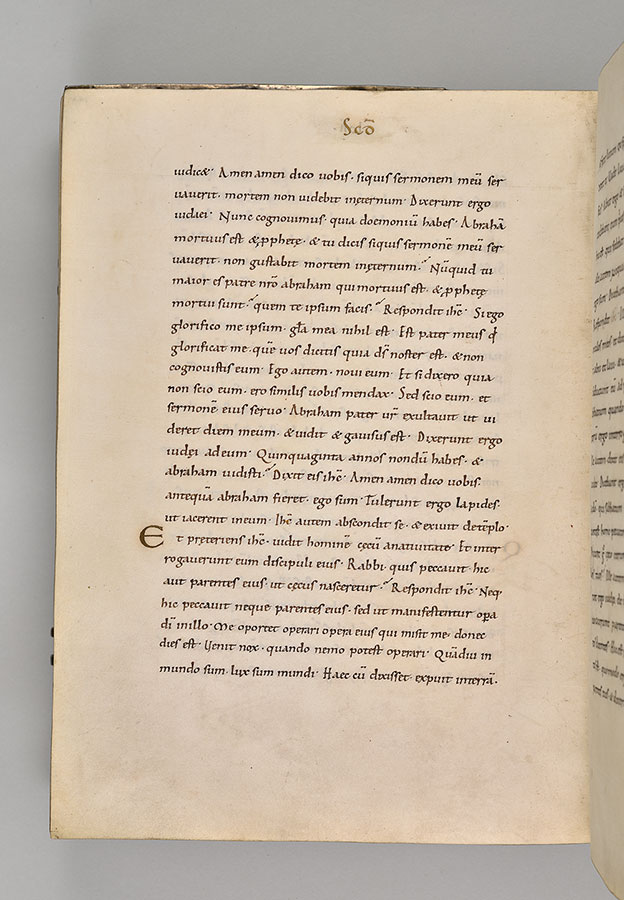 Scō
iudicæ· Amen amen dico uobis· siquis sermonem meū ser
uauerit· mortem non uidebit inęternum· Dixerunt ergo
iudaei· Nunc cognouimus· quia doemoniū habes· Abrahā
mortuus est· & ꝓphetę· & tu dicis siquis sermonē meū ser
uauerit· non gustabit mortem inęternum· Nūquid tu
maior es patre nr̄o abraham qui mortuus est· & ꝓphetę
mortui sunt· quem te ipsum facis· Respondit ihc̄· Si ego
glorifico me ipsum· gl̄a mea nihil est· Est pater meus q̄
glorificat me· quē uos dicitis quia ds̄ noster est· & non
cognouistis eum· Ego autem· noui eum· Et si dixero quia
non scio eum· ero similis uobis mendax· Sed scio eum· et
sermonē eius seruo· Abraham pater ur̄ exultauit ut ui
deret diem meum· & uidit & gauisus est· Dixerunt ergo
iudęi ad eum· Quinquaginta annos nondū habes· &
abraham uidisti· Dixit eis ihc̄· Amen amen dico uobis·
antequā abraham fieret· ego sum· Tulerunt ergo lapides·
ut iacerent ineum· Ihc̄ autem abscondit se· & exiuit detēplo·
Et pręteriens ihc̄· uidit hominē cęcū anatiuitate· Et inter
rogauerunt eum discipuli eius· Rabbi· quis peccauit hic
aut parentes eius· ut cęcus nasceretur· Respondit ihc̄· Neq·
hic peccauit neque parentes eius· sed ut manifestentur opa
dī inillo· Me oportet operari opera eius qui misit me· donec
dies est· Uenit nox· quando nemo potest operari· Quādiu in
mundo sum· lux sum mundi· Haec cū dixisset· expuit interrā·